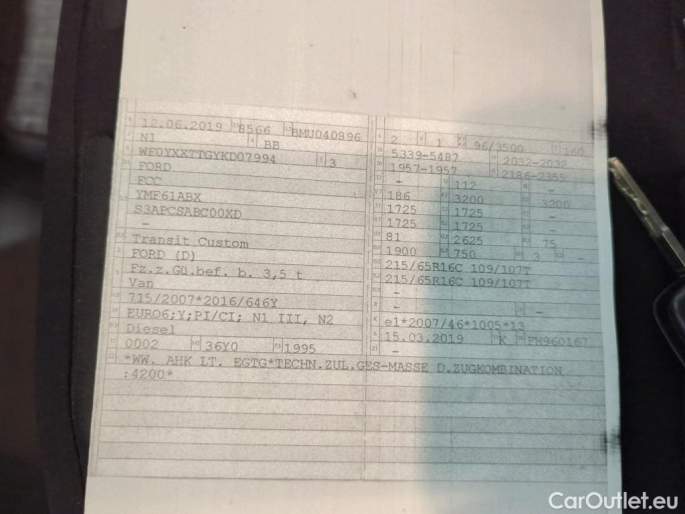 12.06.2019 8566 BMU040896
N1 BB
WF0YXXTTGYKD07994 3
FORD
FCC
YMF61ABX
S3APCSABC00XD
-
Transit Custom
FORD (D)
Fz.z.Gü.bef. b. 3,5 t
Van
715/2007*2016/646Y
EURO6;Y;PI/CI; N1 III, N2
Diesel
0002 36Y0 1995
2 1 96/3500 160
5339-5487 2032-2032
1957-1957 2186-2355
- 112 -
186 3200 3200
1725 1725 -
1725 1725 -
81 2625 75
1900 750 3 -
215/65R16C 109/107T
215/65R16C 109/107T
-
-
e1*2007/46*1005*13
15.03.2019 K FM960167
-
*WW. AHK LT. EGTG*TECHN.ZUL.GES-MASSE D.ZUGKOMBINATION
:4200*
CarOutlet.eu